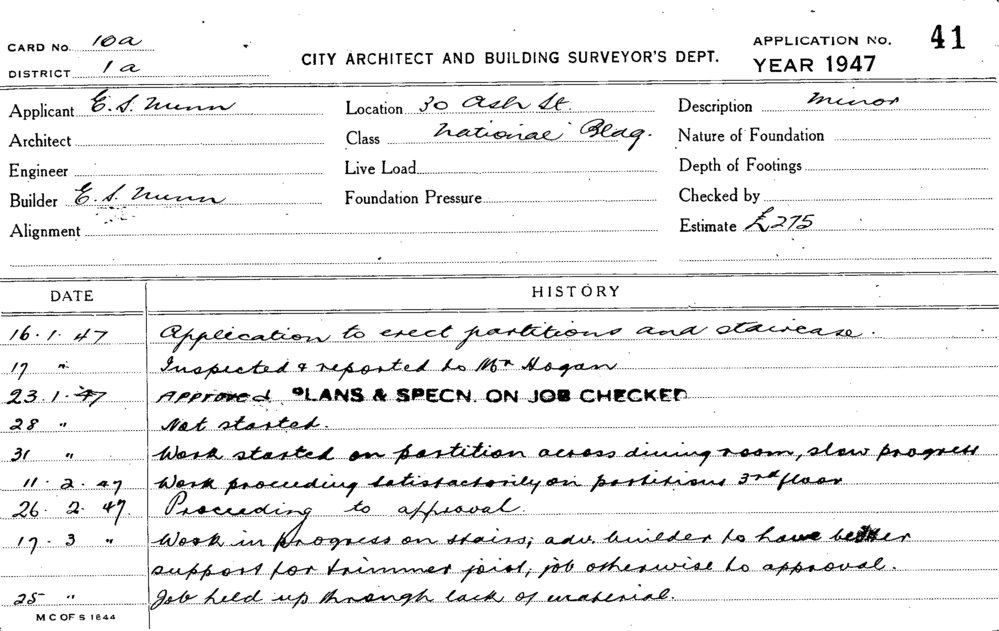 CARD No. 10a
DISTRICT 1a
CITY ARCHITECT AND BUILDING SURVEYOR'S DEPT.
APPLICATION No. 41
YEAR 1947
Applicant E. S. Nunn
Location 30 Ash St.
Description Minor
Architect
Class National Bldg.
Nature of Foundation
Engineer
Live Load
Depth of Footings
Builder E. S. Nunn
Foundation Pressure
Checked by
Alignment
Estimate £275
DATE HISTORY
16.1.47 Application to erect partitions and staircase.
17 " Inspected & reported to Mr Hogan
23.1.47 Approved PLANS & SPECN. ON JOB CHECKED
28 " Not started.
31 " Work started on partition across dining room, slow progress
11.2.47 Work proceeding satisfactorily on partitions 3rd floor
26.2.47. Proceeding to approval.
17.3 " Work in progress on stairs; adv. builder to have better
support for trimmer joist, job otherwise to approval.
25 " Job held up through lack of material.
M C OF S 1844